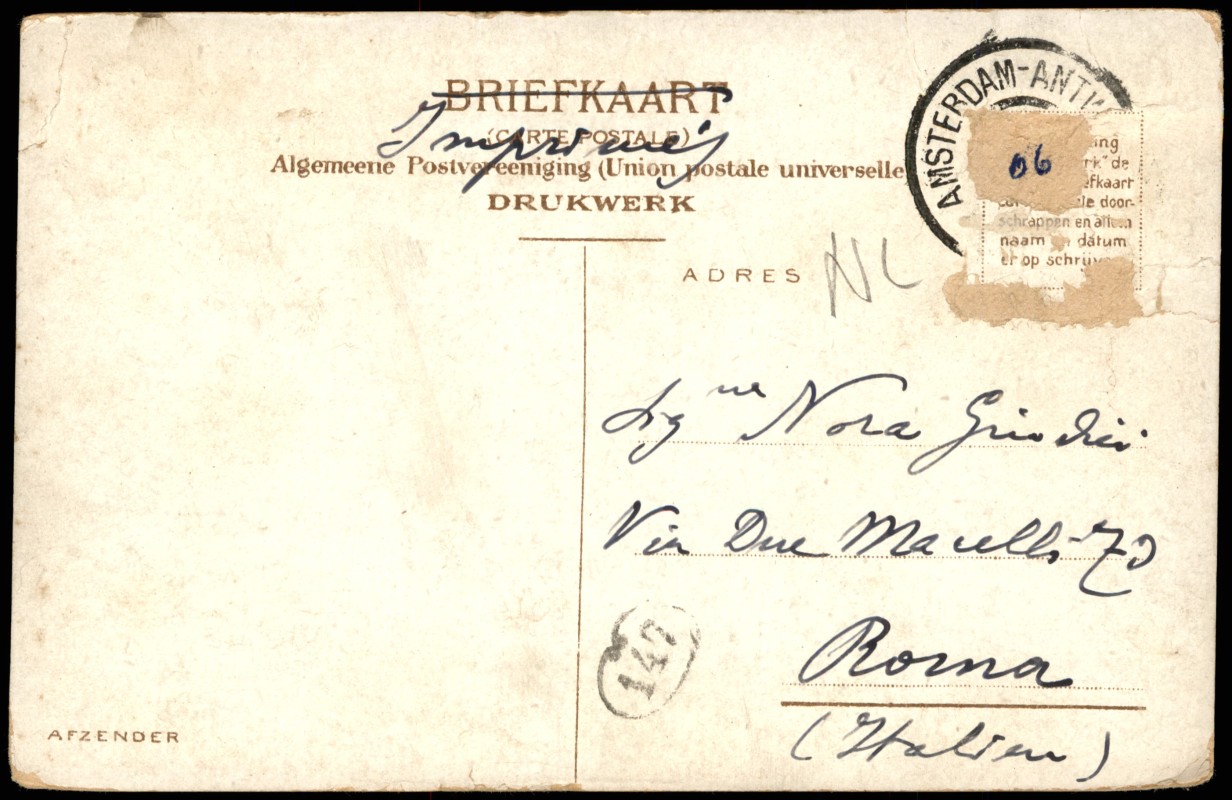 BRIEFKAART
Imprimés
(CARTE POSTALE)
Algemeene Postvereeniging (Union postale universelle
DRUKWERK
AMSTERDAM-ANTW
06
ing
rk" de
efkaart
le door-
schrappen en alleen
naam en datum
er op schrijv
ADRES
NL
Sig ne Nora Giudici
Via Due Macelli 70
Roma
(Italien)
147
AFZENDER